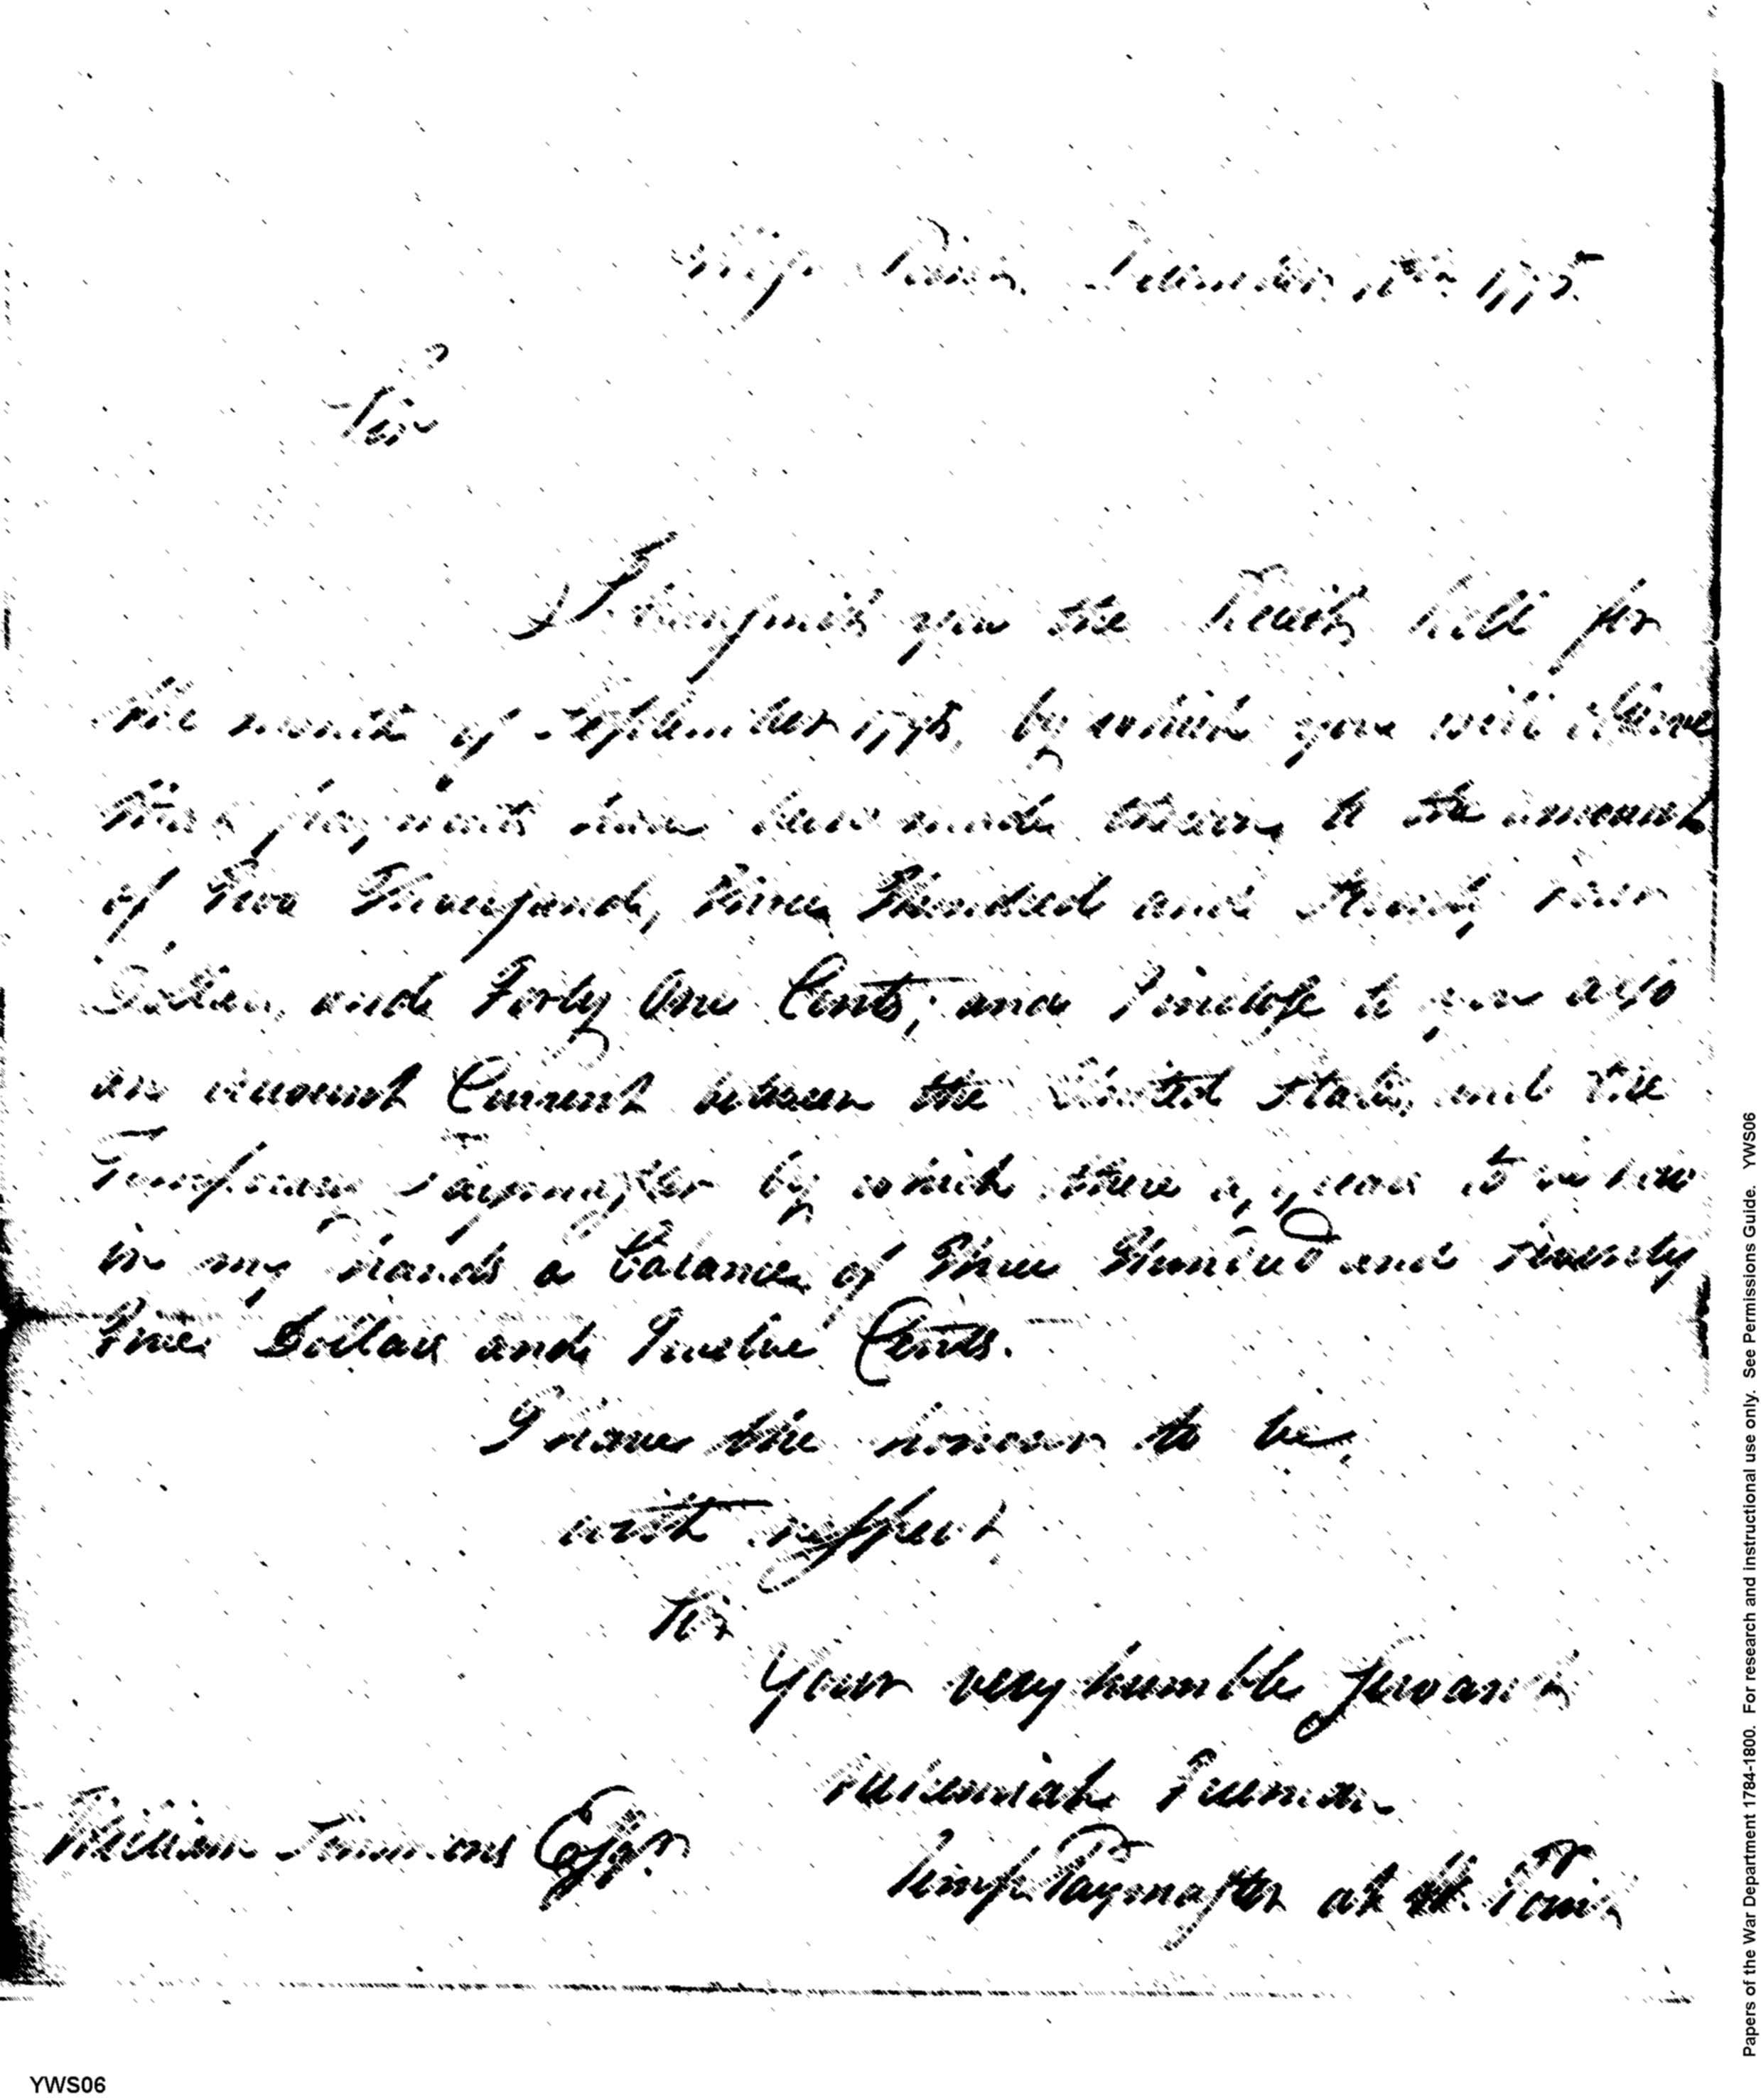 West Point December 1795.
Sir
I transmit you the Receipt Roll for
the month of September 1795, by which you will observe
that payments have been made thereon, to the amount
of Two Thousand, three Hundred and four
Dollars, and Forty One Cents; and I inclose to you also
an account Current between the United States, and the
Temporary Paymaster by which there appears to remain
in my hands a balance of Three Hundred and seventy
Dollars and Twelve Cents.
I have the honour to be,
with respect
Sir
Your very humble servant
Freeman
William Simmons Esqr.
Temp. Paymaster at W. Point
Papers of the War Department 1784-1800. For research and instructional use only. See Permissions Guide. YWS06
YWS06